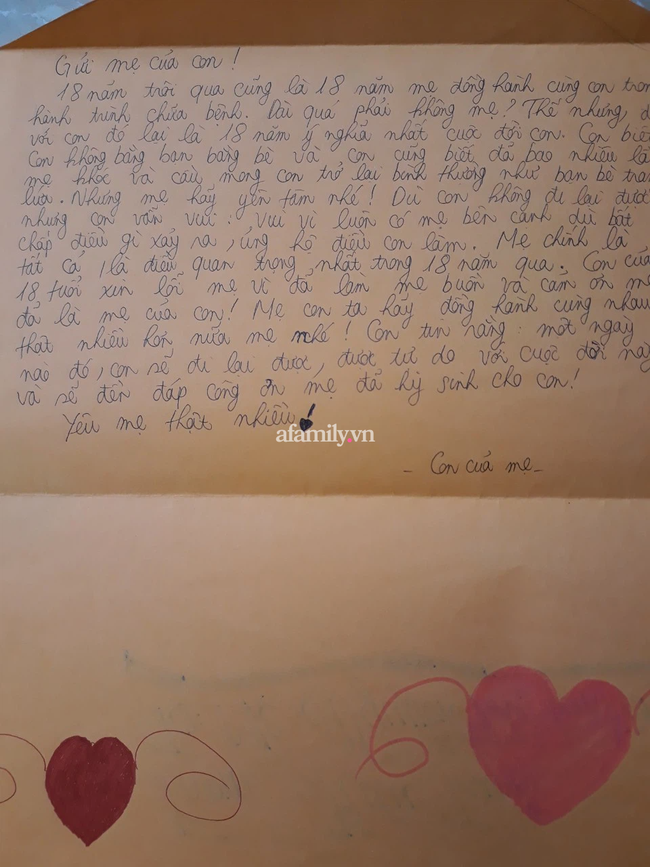 Gửi mẹ của con!
18 năm trôi qua cũng là 18 năm mẹ đồng hành cùng con tron
hành trình chữa bệnh. Dài quá phải không mẹ? Thế nhưng, đ
với con đó lại là 18 năm ý nghĩa nhất cuộc đời con. Con biế
con không bằng bạn bằng bè và con cũng biết đã bao nhiêu lầ
mẹ khóc và cầu mong con trở lại bình thường như bạn bè tra
lứa. Nhưng mẹ hãy yên tâm nhé! Dù con không đi lại đượ
nhưng con vẫn vui. Vui vì luôn có mẹ bên cạnh dù bất
chấp điều gì xảy ra, ủng hộ điều con làm. Mẹ chính là
tất cả, là điều quan trọng nhất trong 18 năm qua. Con của
18 tuổi xin lỗi mẹ vì đã làm mẹ buồn và cảm ơn mẹ
đã là mẹ của con! Mẹ con ta hãy đồng hành cùng nhau
thật nhiều hơn nữa mẹ nhé! Con tin rằng: một ngày
nào đó, con sẽ đi lại được, được tự do với cuộc đời này
và sẽ đền đáp công ơn mẹ đã hy sinh cho con!
Yêu mẹ thật nhiều!
afamily.vn
- Con của mẹ -